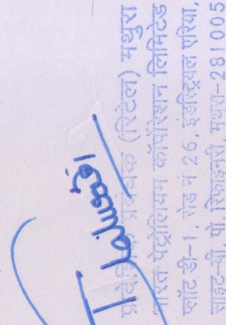 प्रबंधक (रिटेल) मथुरा
भारत पेट्रोलियम कॉर्पोरेशन लिमिटेड
प्लॉट डी-1 रोड न 26, इंडस्ट्रियल एरिया,
साइट-बी, पो रिफाइनरी, मथुरा-281005